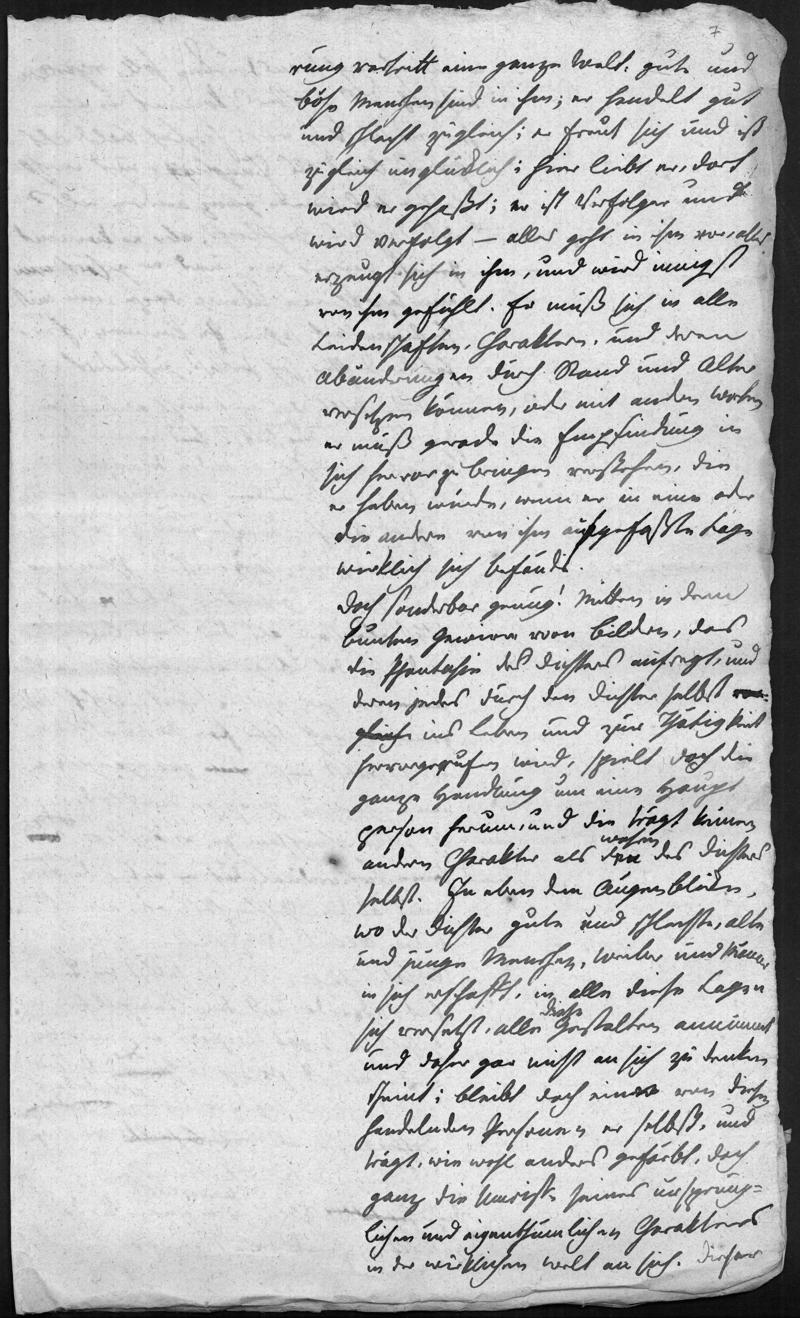 7
rung vertritt eine ganze Welt: gute und
böse Menschen sind in ihm; er handelt gut
und schlecht zugleich; er freut sich und ist
zugleich unglücklich; hier liebt er, dort
wird er gehaßt; er ist Verfolger und
wird verfolgt — alles geht in ihm vor, alles
erzeugt sich in ihm, und wird innigst
von ihm gefühlt. Er muß sich in alle
Leidenschaften, Charaktere, und deren
Abänderungen durch Stand und Alter
versetzen können, oder mit andern Worten
er muß gerade die Empfindung in
sich hervorzubringen verstehen, die
er haben würde, wenn er in eine oder
die andere von ihm aufgefaßte Lage
wirklich sich befände.
Doch sonderbar genug! Mitten in dem
bunten Gewirre von Bildern, das
die Phantasie des Dichters aufregt, und
deren jedes durch den Dichter selbst
gleich ins Leben und zur Thätigkeit
hervorgerufen wird, spielt doch die
ganze Handlung um eine Haupt
person herum, und die trägt keinen
andern Charakter als den wahren des Dichters
selbst. In eben dem Augenblicke,
wo der Dichter gute und schlechte, alte
und junge Menschen, Weiber und Männer
in sich erschafft, in alle diese Lagen
sich versetzt, alle diese Gestalten annimmt
und daher gar nicht an sich zu denken
scheint; bleibt doch eine von diesen
handelnden Personen er selbst, und
trägt, wie wohl anders gefärbt, doch
ganz die Umrisse seines ursprüng=
lichen und eigenthümlichen Charakters
in der wirklichen Welt an sich. Dieser